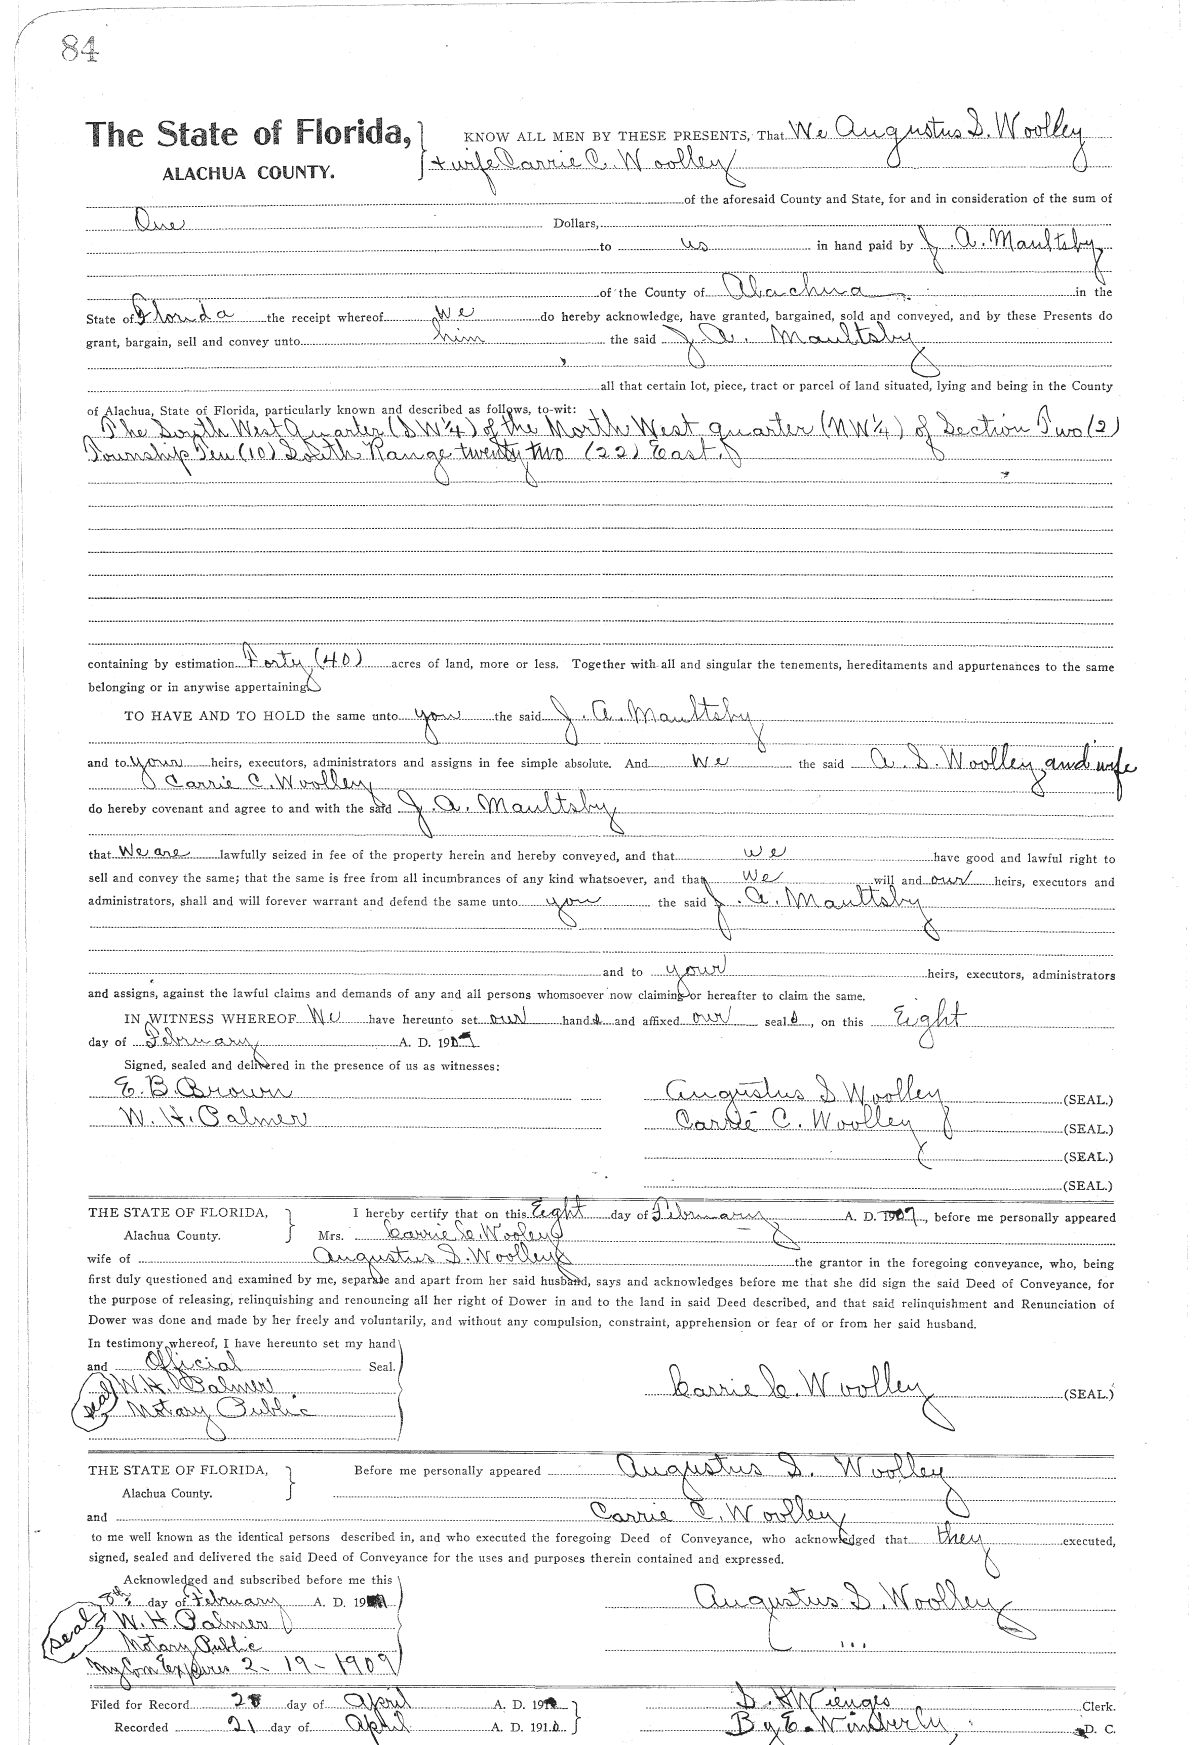 84
The State of Florida, KNOW ALL MEN BY THESE PRESENTS, That We Augustus S. Woolley
ALACHUA COUNTY. + wife Carrie C. Woolley
of the aforesaid County and State, for and in consideration of the sum of
One Dollars,
to us in hand paid by J. A. Maultsby
of the County of Alachua in the
State of Florida the receipt whereof We do hereby acknowledge, have granted, bargained, sold and conveyed, and by these Presents do
grant, bargain, sell and convey unto him the said J. A. Maultsby
all that certain lot, piece, tract or parcel of land situated, lying and being in the County
of Alachua, State of Florida, particularly known and described as follows, to-wit:
The South West Quarter (SW¼) of the North West quarter (NW¼) of Section Two (2)
Township Ten (10) South Range twenty two (22) East.
containing by estimation Forty (40) acres of land, more or less. Together with all and singular the tenements, hereditaments and appurtenances to the same
belonging or in anywise appertaining.
TO HAVE AND TO HOLD the same unto you the said J. A. Maultsby
and to your heirs, executors, administrators and assigns in fee simple absolute. And We the said A. S. Woolley and wife
Carrie C. Woolley
do hereby covenant and agree to and with the said J. A. Maultsby
that We are lawfully seized in fee of the property herein and hereby conveyed, and that we have good and lawful right to
sell and convey the same; that the same is free from all incumbrances of any kind whatsoever, and that We will and our heirs, executors and
administrators, shall and will forever warrant and defend the same unto you the said J. A. Maultsby
and to your heirs, executors, administrators
and assigns, against the lawful claims and demands of any and all persons whomsoever now claiming or hereafter to claim the same.
IN WITNESS WHEREOF We have hereunto set our hands and affixed our seals, on this Eight
day of February A. D. 1907
Signed, sealed and delivered in the presence of us as witnesses:
E. B. Brown Augustus S Woolley (SEAL.)
W. H. Palmer Carrie C. Woolley (SEAL.)
(SEAL.)
(SEAL.)
THE STATE OF FLORIDA, I hereby certify that on this Eight day of February A. D. 1907, before me personally appeared
Alachua County. Mrs. Carrie C. Wooley
wife of Augustus S. Woolley the grantor in the foregoing conveyance, who, being
first duly questioned and examined by me, separate and apart from her said husband, says and acknowledges before me that she did sign the said Deed of Conveyance, for
the purpose of releasing, relinquishing and renouncing all her right of Dower in and to the land in said Deed described, and that said relinquishment and Renunciation of
Dower was done and made by her freely and voluntarily, and without any compulsion, constraint, apprehension or fear of or from her said husband.
In testimony whereof, I have hereunto set my hand
and Official Seal.
seal W. H. Palmer Carrie C. Woolley (SEAL.)
Notary Public
THE STATE OF FLORIDA, Before me personally appeared Augustus S. Woolley
Alachua County.
and Carrie C. Woolley
to me well known as the identical persons described in, and who executed the foregoing Deed of Conveyance, who acknowledged that they executed,
signed, sealed and delivered the said Deed of Conveyance for the uses and purposes therein contained and expressed.
Acknowledged and subscribed before me this
8th day of February A. D. 19 Augustus S. Woolley
seal W. H. Palmer
Notary Public
My Com Expires 2-19-1909
Filed for Record day of April A. D. 19 S. H Wienges Clerk.
Recorded 21 day of April A. D. 191 By E. Wimberly, D. C.